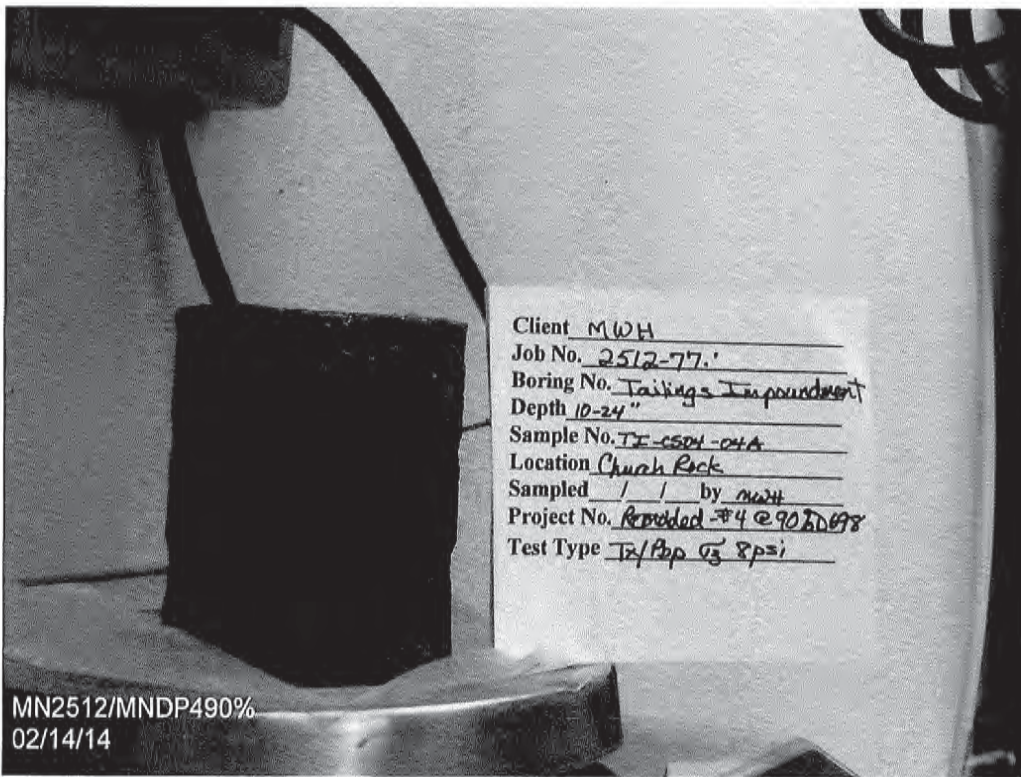 Client MWH
Job No. 2512-77.
Boring No. Tailings Impoundment
Depth 10-24"
Sample No. TI-CS04-04A
Location Church Rock
Sampled / / by MWH
Project No. Remolded -#4 @ 90% D698
Test Type Tx/Pbp σ3 8psi
MN2512/MNDP490%
02/14/14